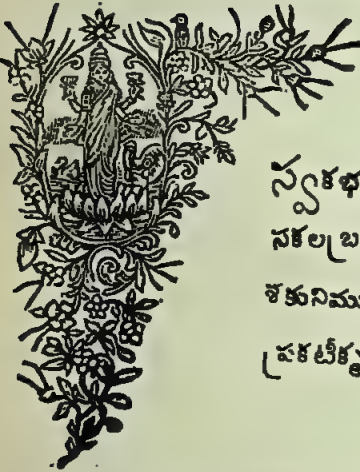 స్వకభ
సకలబ్ర
శకునిము
ప్రకటీకృ